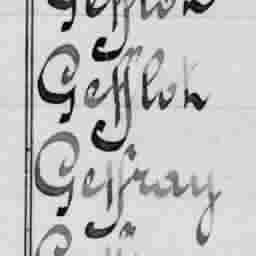 Gefflok
Gefflok
Geffray